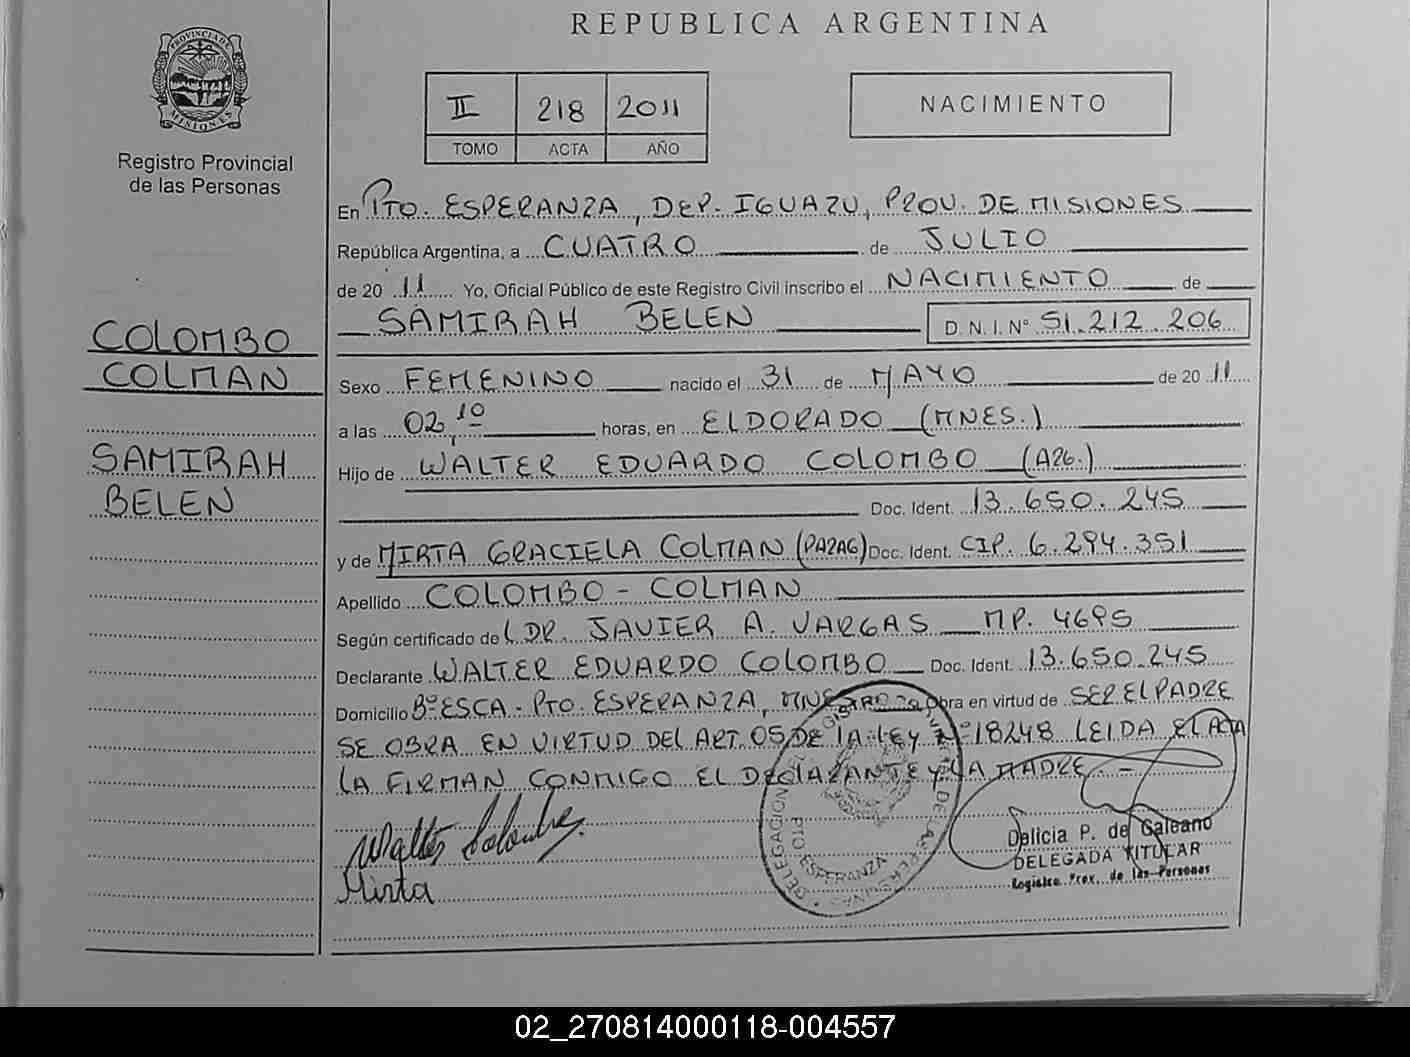 REPUBLICA ARGENTINA
PROVINCIA DE MISIONES
Registro Provincial
de las Personas
II 218 2011
TOMO ACTA AÑO
NACIMIENTO
COLOMBO
COLMAN
SAMIRAH
BELEN
En PTO. ESPERANZA, DEP. IGUAZU, PROV. DE MISIONES
República Argentina, a CUATRO de JULIO
de 20 11 Yo, Oficial Público de este Registro Civil inscribo el NACIMIENTO de
SAMIRAH BELEN D.N.I. N° 51.212.206
Sexo FEMENINO nacido el 31 de MAYO de 20 11
a las 02,10 horas, en ELDORADO (MNES.)
Hijo de WALTER EDUARDO COLOMBO (A26.)
Doc. Ident. 13.650.245
y de MIRTA GRACIELA COLMAN (PARAG) Doc. Ident. CIP. 6.294.351
Apellido COLOMBO - COLMAN
Según certificado de DR. JAVIER A. VARGAS MP. 4695
Declarante WALTER EDUARDO COLOMBO Doc. Ident. 13.650.245
Domicilio B° ESCA - PTO. ESPERANZA, MNES Obra en virtud de SER EL PADRE
SE OBRA EN VIRTUD DEL ART. 05 DE LA LEY N° 18248 LEIDA EL ACTA
LA FIRMAN CONMIGO EL DECLARANTE Y LA MADRE. -
Walter Colombo
Mirta
DELEGACION PTO ESPERANZA
DE LAS PERSONAS
Delicia P. de Galeano
DELEGADA TITULAR
Registro Prov. de las Personas
02_270814000118-004557